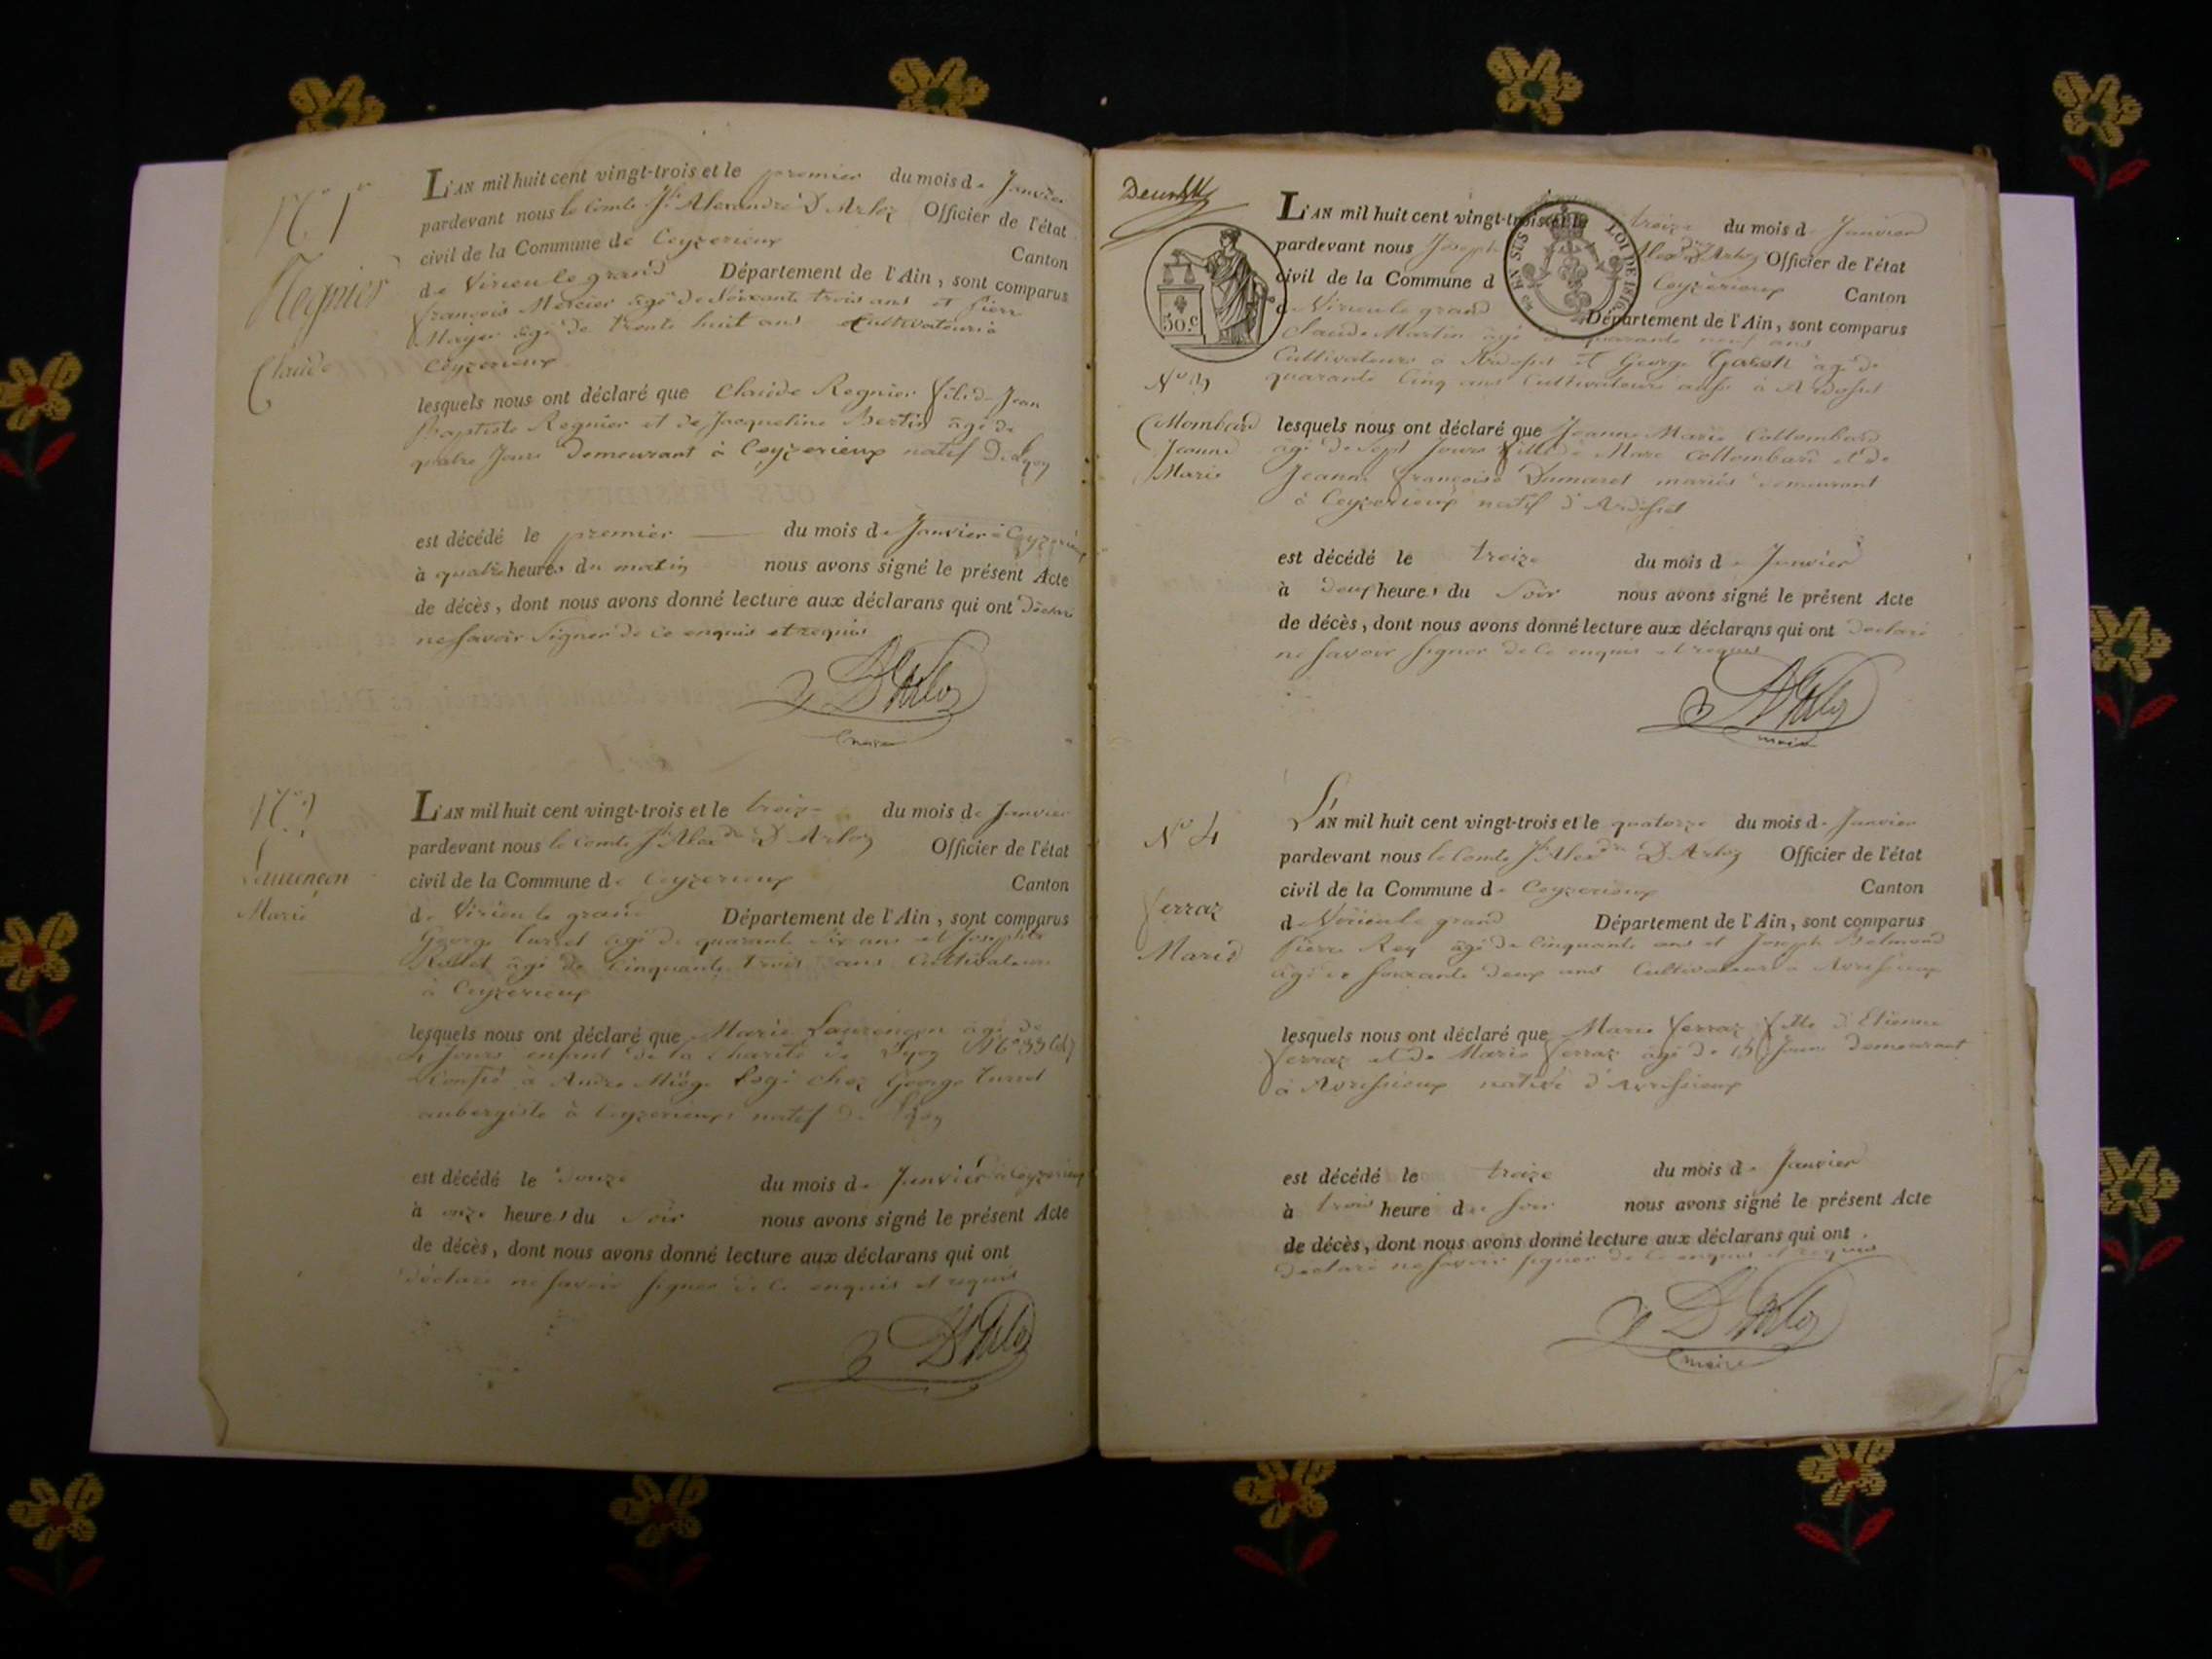 N° 1er
Regnier
Claude
L'AN mil huit cent vingt-trois et le premier du mois de Janvier
pardevant nous le Comte Jh Alexandre D'Arloz Officier de l'état
civil de la Commune de Ceyzerieux Canton
de Virieu le grand Département de l'Ain, sont comparus
François Mercier âgé de Soixante trois ans et Pierre
âgé de trente huit ans Cultivateurs à
Ceyzerieux
lesquels nous ont déclaré que Claude Regnier fils de Jean
Baptiste Regnier et de Jacqueline Bertin âgé de
quatre Jours demeurant à Ceyzerieux natif de Lyon
est décédé le premier du mois de Janvier à Ceyzerieux
à quatre heures du matin nous avons signé le présent Acte
de décès, dont nous avons donné lecture aux déclarans qui ont déclaré
ne savoir signer de ce enquis et requis
D'Arloz
maire
N° 2
Laurençon
Marie
L'AN mil huit cent vingt-trois et le treize du mois de Janvier
pardevant nous le Comte Jh Alexdre D'Arloz Officier de l'état
civil de la Commune de Ceyzerieux Canton
de Virieu le grand Département de l'Ain, sont comparus
George Turrel âgé de quarante six ans et Joseph
âgé de Cinquante trois ans Cultivateurs
à Ceyzerieux
lesquels nous ont déclaré que Marie Laurençon âgé de
4 Jours enfant de la Charité de Lyon N° 33
Confié à André Miège logé chez George Turrel
aubergiste à Ceyzerieux natif de Lyon
est décédé le douze du mois de Janvier à Ceyzerieux
à onze heures du soir nous avons signé le présent Acte
de décès, dont nous avons donné lecture aux déclarans qui ont
déclaré ne savoir signer de ce enquis et requis
D'Arloz
50 c
EN SUS LOI DE 1816
N° 3
Collombard
Jeanne
Marie
L'AN mil huit cent vingt-trois et le treize du mois de Janvier
pardevant nous Joseph Alexdre D'Arloz Officier de l'état
civil de la Commune d Ceyzerieux Canton
de Virieu le grand Département de l'Ain, sont comparus
Claude Martin âgé de quarante neuf ans
Cultivateurs à Ardosset et George âgé de
quarante Cinq ans Cultivateurs aussi à Ardosset
lesquels nous ont déclaré que Jeanne Marie Collombard
âgé de Sept Jours fille de Marc Collombard et de
Jeanne Françoise Dumarest mariés demeurant
à Ceyzerieux natif d'Ardosset
est décédé le treize du mois de Janvier
à deux heures du soir nous avons signé le présent Acte
de décès, dont nous avons donné lecture aux déclarans qui ont déclaré
ne savoir signer de ce enquis et requis
D'Arloz
maire
N° 4
Ferraz
Marie
L'AN mil huit cent vingt-trois et le quatorze du mois de Janvier
pardevant nous le Comte Jh Alexdre D'Arloz Officier de l'état
civil de la Commune de Ceyzerieux Canton
de Virieu le grand Département de l'Ain, sont comparus
Pierre Rey âgé de Cinquante ans et Joseph Belmond
âgé de soixante deux ans Cultivateurs à Avrissieux
lesquels nous ont déclaré que Marie Ferraz fille d'Etienne
Ferraz et de Marie Ferraz âgé de 15 Jours demeurant
à Avrissieux native d'Avrissieux
est décédé le treize du mois de Janvier
à trois heure du soir nous avons signé le présent Acte
de décès, dont nous avons donné lecture aux déclarans qui ont
déclaré ne savoir signer de ce enquis et requis
D'Arloz
maire